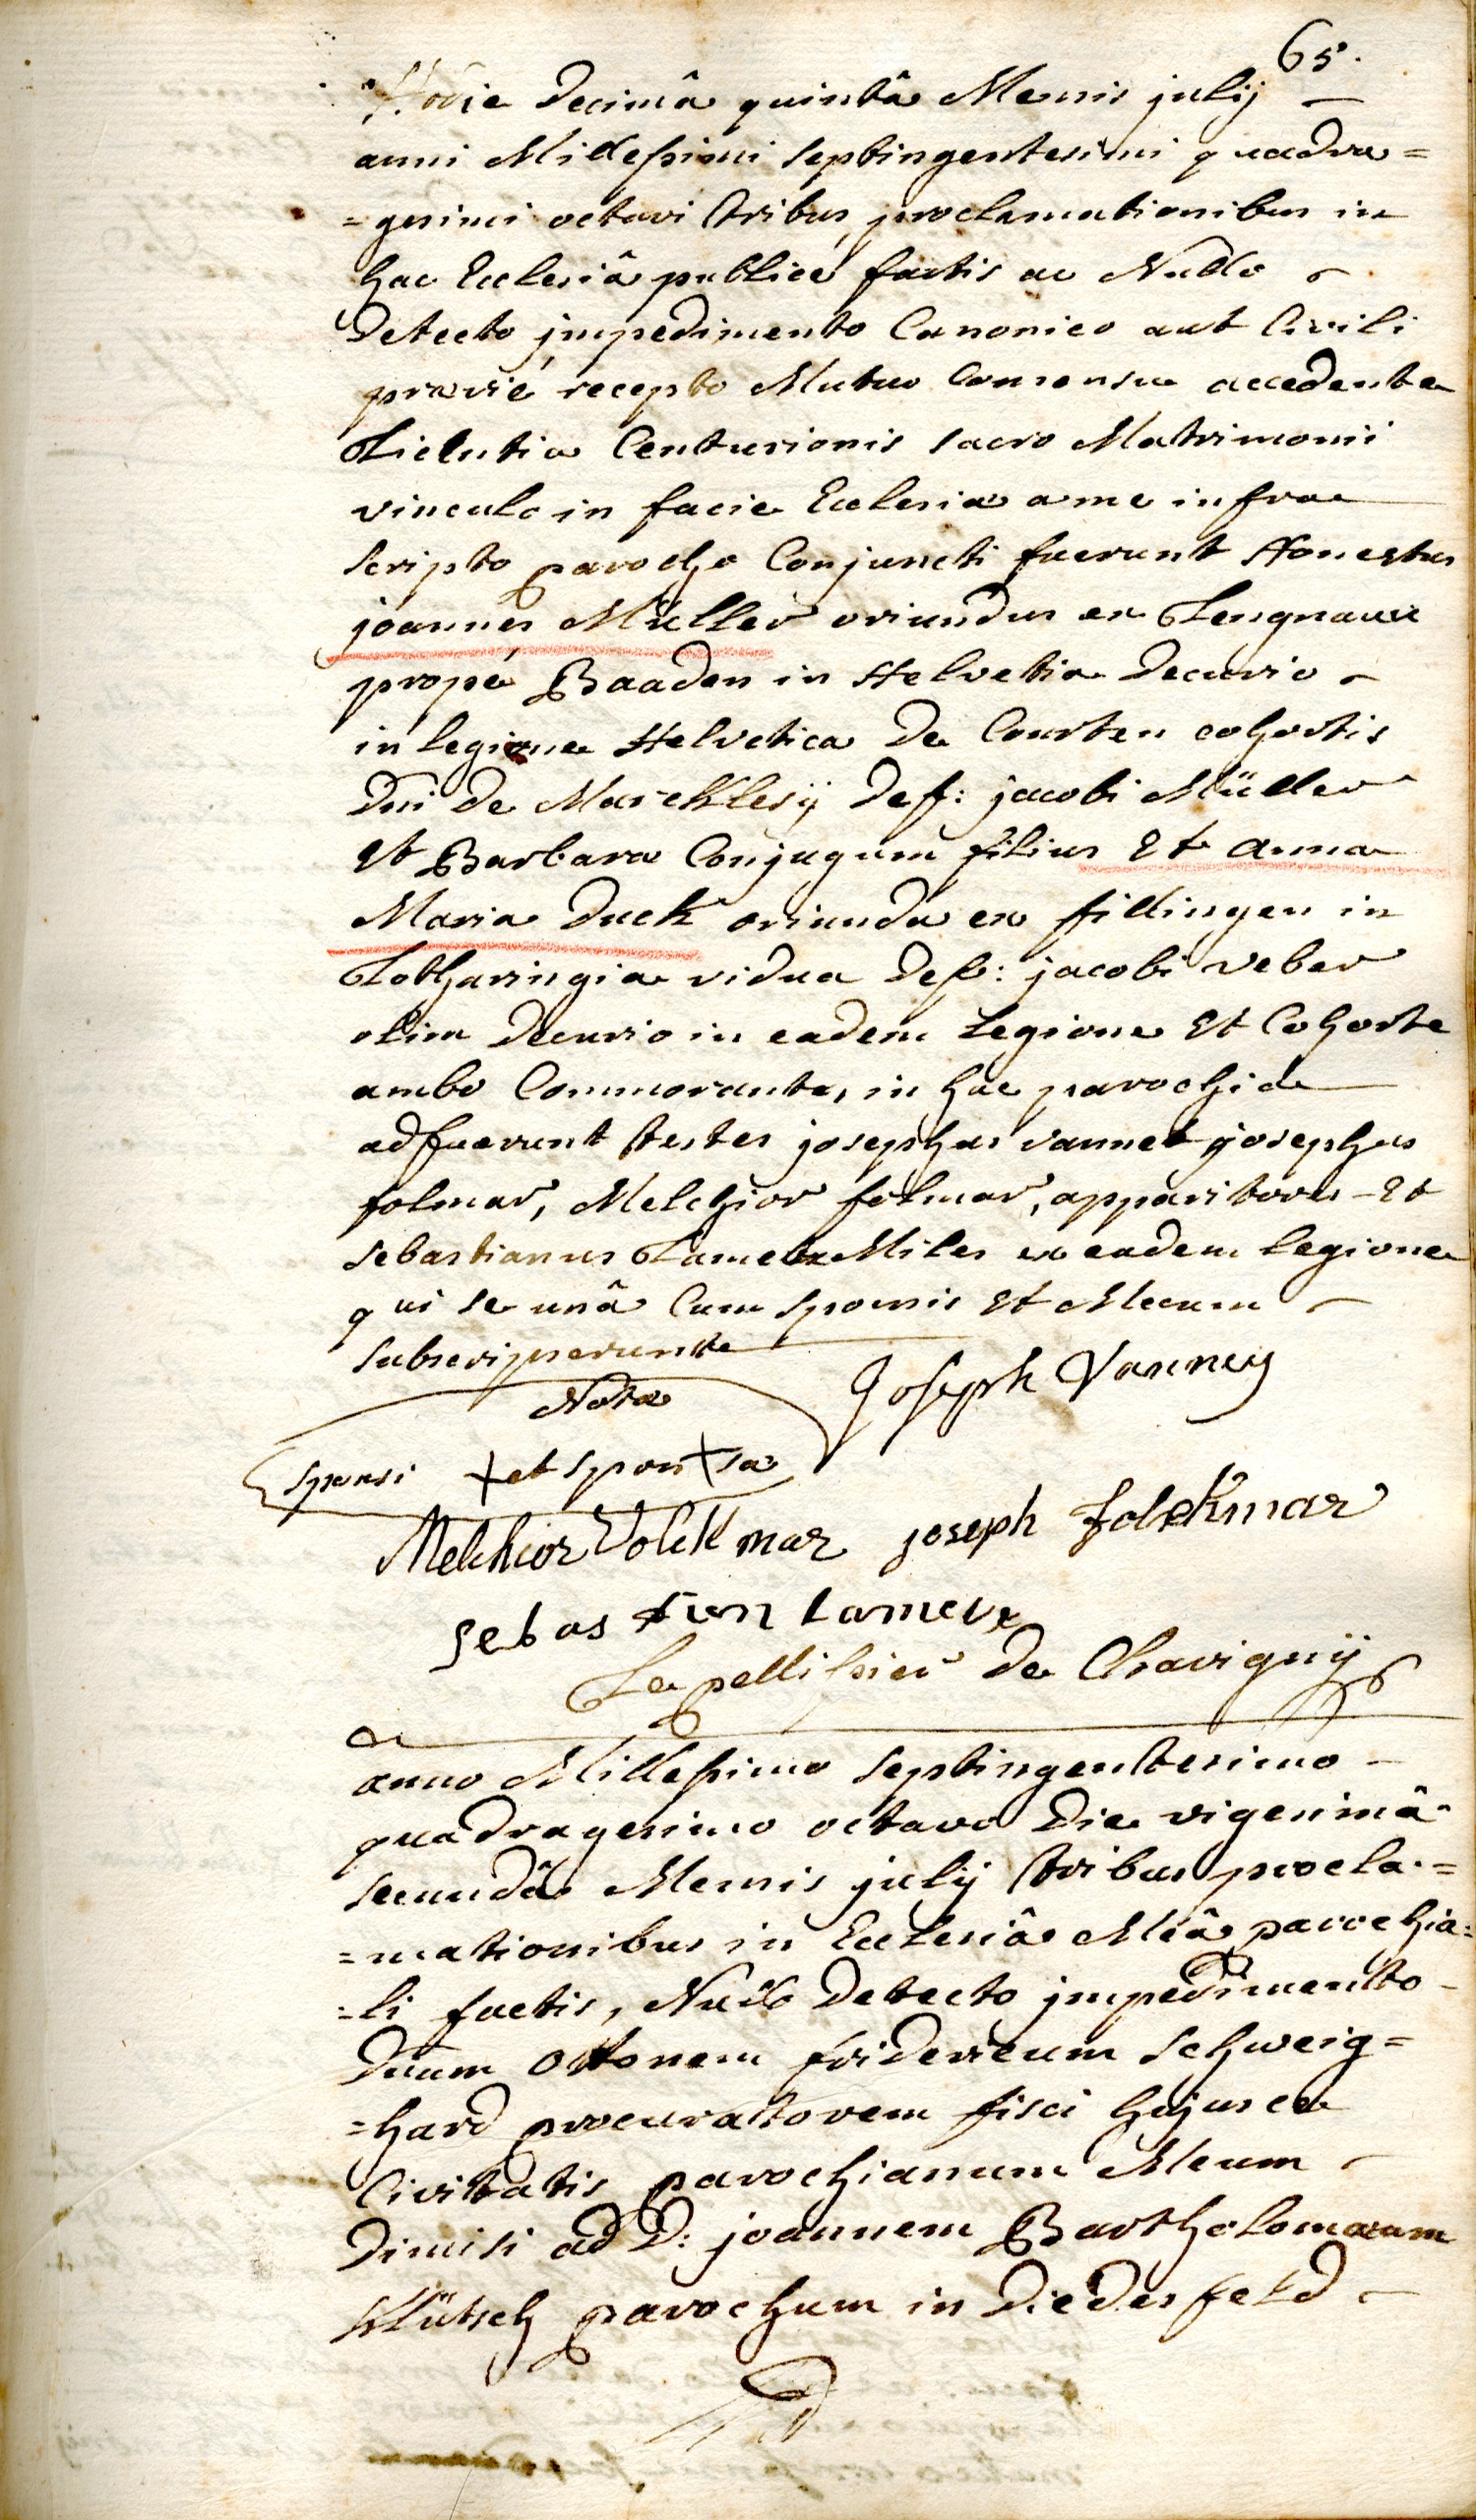 65.
Hodie decimâ quintâ Mensis julij
anni Millesimi septingentesimi quadra=
=gesimi octavi tribus proclamationibus in
hac Ecclesiâ publicé factis ac Nullo
detecto jmpedimento Canonico aut Civili
prævié recepto Mutuo Consensu accedente
Licentia Centurionis sacro Matrimonii
vinculo in facie Ecclesiæ a me infra
scripto parocho Conjuncti fuerunt Honestus
joannes Müller oriundus ex Lengnauu
propé Baaden in Helvetia decurio
in legione Helvetica de Courten cohortis
Dni de Marcklesij def: jacobi Müller
et Barbara Conjugum filius Et anna
Maria Duck oriunda ex fillingen in
Lotharingia vidua def: jacobi veber
olim decurio in eadem Legione Et Cohorte
ambo Commorantes in hac parochia
adfuerunt testes josephus vannet josephus
folmar, Melchior folmar, apparitores Et
sebastianus Lamelx Miles ex eadem legione
qui se unâ Cum sponsis Et Mecum
subscripserunt
Nota
sponsi + et spon+sa
Joseph Vanney
Melchior Volckmar joseph folckmar
sebastian Lamelx
Le pellissier de Chavignÿ
anno Millesimo septingentesimo
quadragesimo octavo die vigesimâ
secundâ Mensis julij tribus procla=
=mationibus in Ecclesiâ Meâ parochia=
=li factis, Nullo detecto jmpedimento
dnum ottonem fridericum schweig=
=hard procuratorem fisci hujusce
Civitatis parochianum Meum
dimisi ad D: joannem Bartholomæum
Klütsch parochum in Diedesfeld